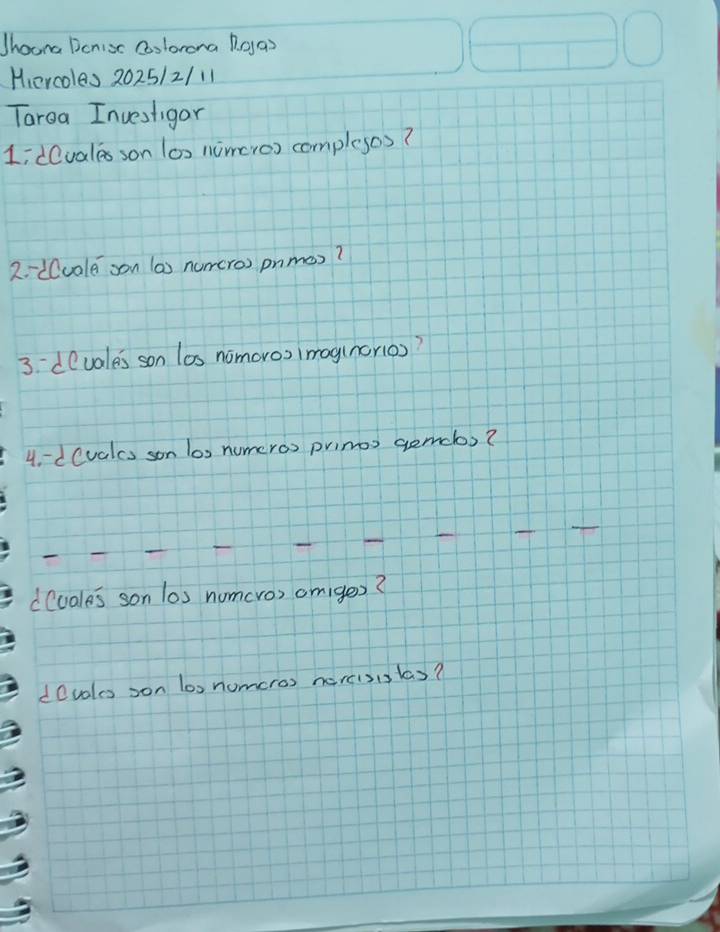 Jhoana Denise Castorena Rojas
Miercoles 2025/2/11
Tarea Investigar
1.-¿Cuales son los números complejos?
2.-¿Cualé son los numeros primos?
3.-¿Cuales son los números imaginarios?
4.-¿Cuales son los numeros primos gemelos?
¿Cuales son los numeros amigos?
¿Cuales son los numeros narcisistas?